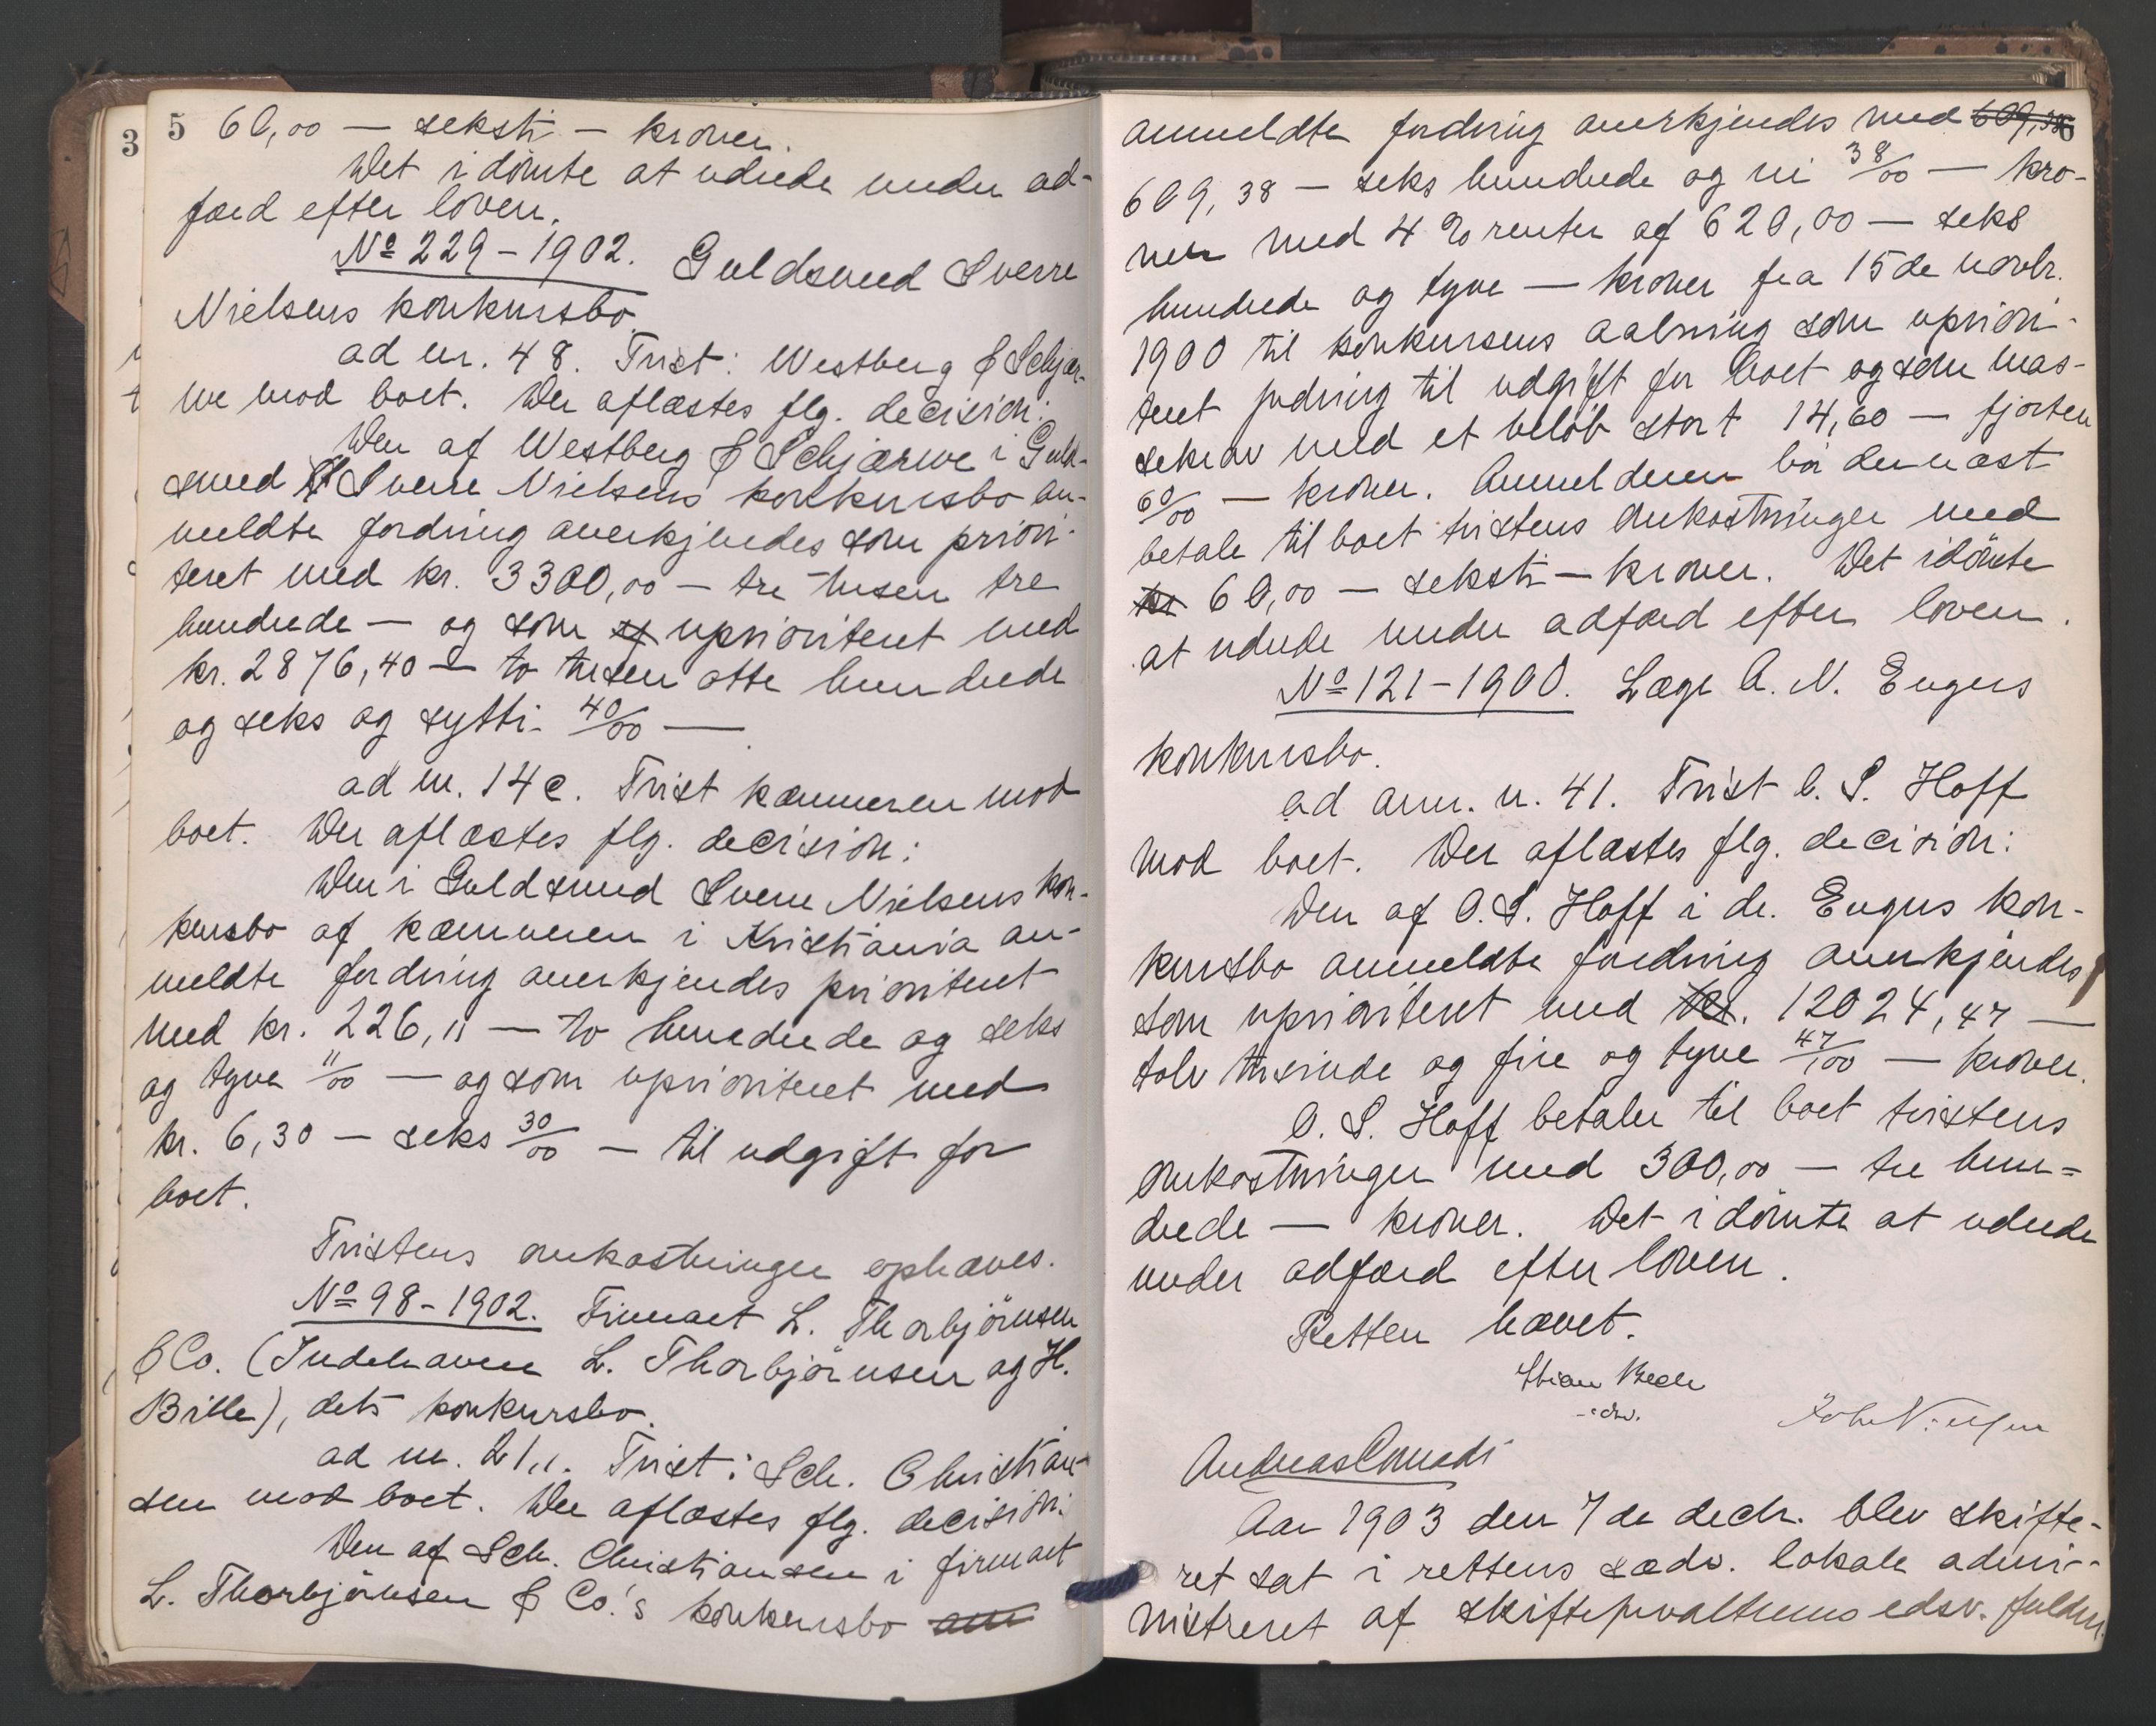 3
5 60,00 — seksti — kroner.
Det idömte at udrede under ad-
færd efter loven.
No 229-1902. Guldsmed Sverre
Nielsens konkursbo
ad nr. 48. Tvist: Westberg & Schjær-
we mod boet. Der aflæstes flg. decision:
Den af Westberg & Schjærwe i Guld-
smed Sverre Nielsens konkursbo an-
meldte fordring anerkjendes som priori-
teret med kr. 3300,00 — tre tusen tre
hundrede — og som upriorit​eret med
kr. 2876,40 — to tusen otte hundrede
og seks og sytti 40/00 —
ad nr. 14 c. Tvist kæmneren mod
boet. Der aflæstes flg. decision:
Den i Guldsmed Sverre Nielsens kon-
kursbo af kæmneren i Kristiania an-
meldte fordring anerkjendes prioriteret
med kr. 226,11 — to hundrede og seks
og tyve 11/00 — og som uprioriteret med
kr. 6,30 — seks 30/00 — til udgift for
boet.
Tvistens omkostninger ophæves.
No 98-1902. Firmaet L. Thorbjörnsen
& Co. (Indehavere L. Thorbjörnsen og H.
Bille), dets konkursbo.
ad nr. 21,1. Tvist: Sch. Christian-
sen mod boet. Der aflæstes flg. decision:
Den af Sch. Christiansen i firmaet
L. Thorbjörnsen & Co.'s konkursbo anm
anmeldte fordring anerkjendes med 609,38
6
609,38 — seks hundrede og ni 38/00 — kro-
ner med 4 % renter af 620,00 — seks
hundrede og tyve — kroner fra 15de novbr.
1900 til konkursens aabning som upriori-
teret fordring til udgift for boet og som mas-
sekrav med et beløb stort 14,60 — fjorten
60/00 — kroner. Anmelderen bör dernæst
betale til boet tvistens omkostninger med
kr 60,00 — seksti — kroner. Det idömte
at udrede under adfærd efter loven.
No 121-1900. Læge A. N. Engers
konkursbo.
ad anm. n. 41. Tvist O. S. Hoff
mod boet. Der aflæstes flg. decision:
Den af O. S. Hoff i dr. Engers kon-
kursbo anmeldte fordring anerkjendes
som uprioriteret med kr. 12024,47 —
tolv tusinde og fire og tyve 47/100 — kroner.
O. S. Hoff betaler til boet tvistens
omkostninger med 300,00 — tre hun-
drede — kroner. Det idömte at udrede
under adfærd efter loven.
Retten hævet.
Stian Bech
edsv.
Andreas Conradi
Aar 1903 den 7de decbr. blev skifte-
ret sat i rettens sædv. lokale admi-
nistreret af skifteforvalterens edsv. fuldm.